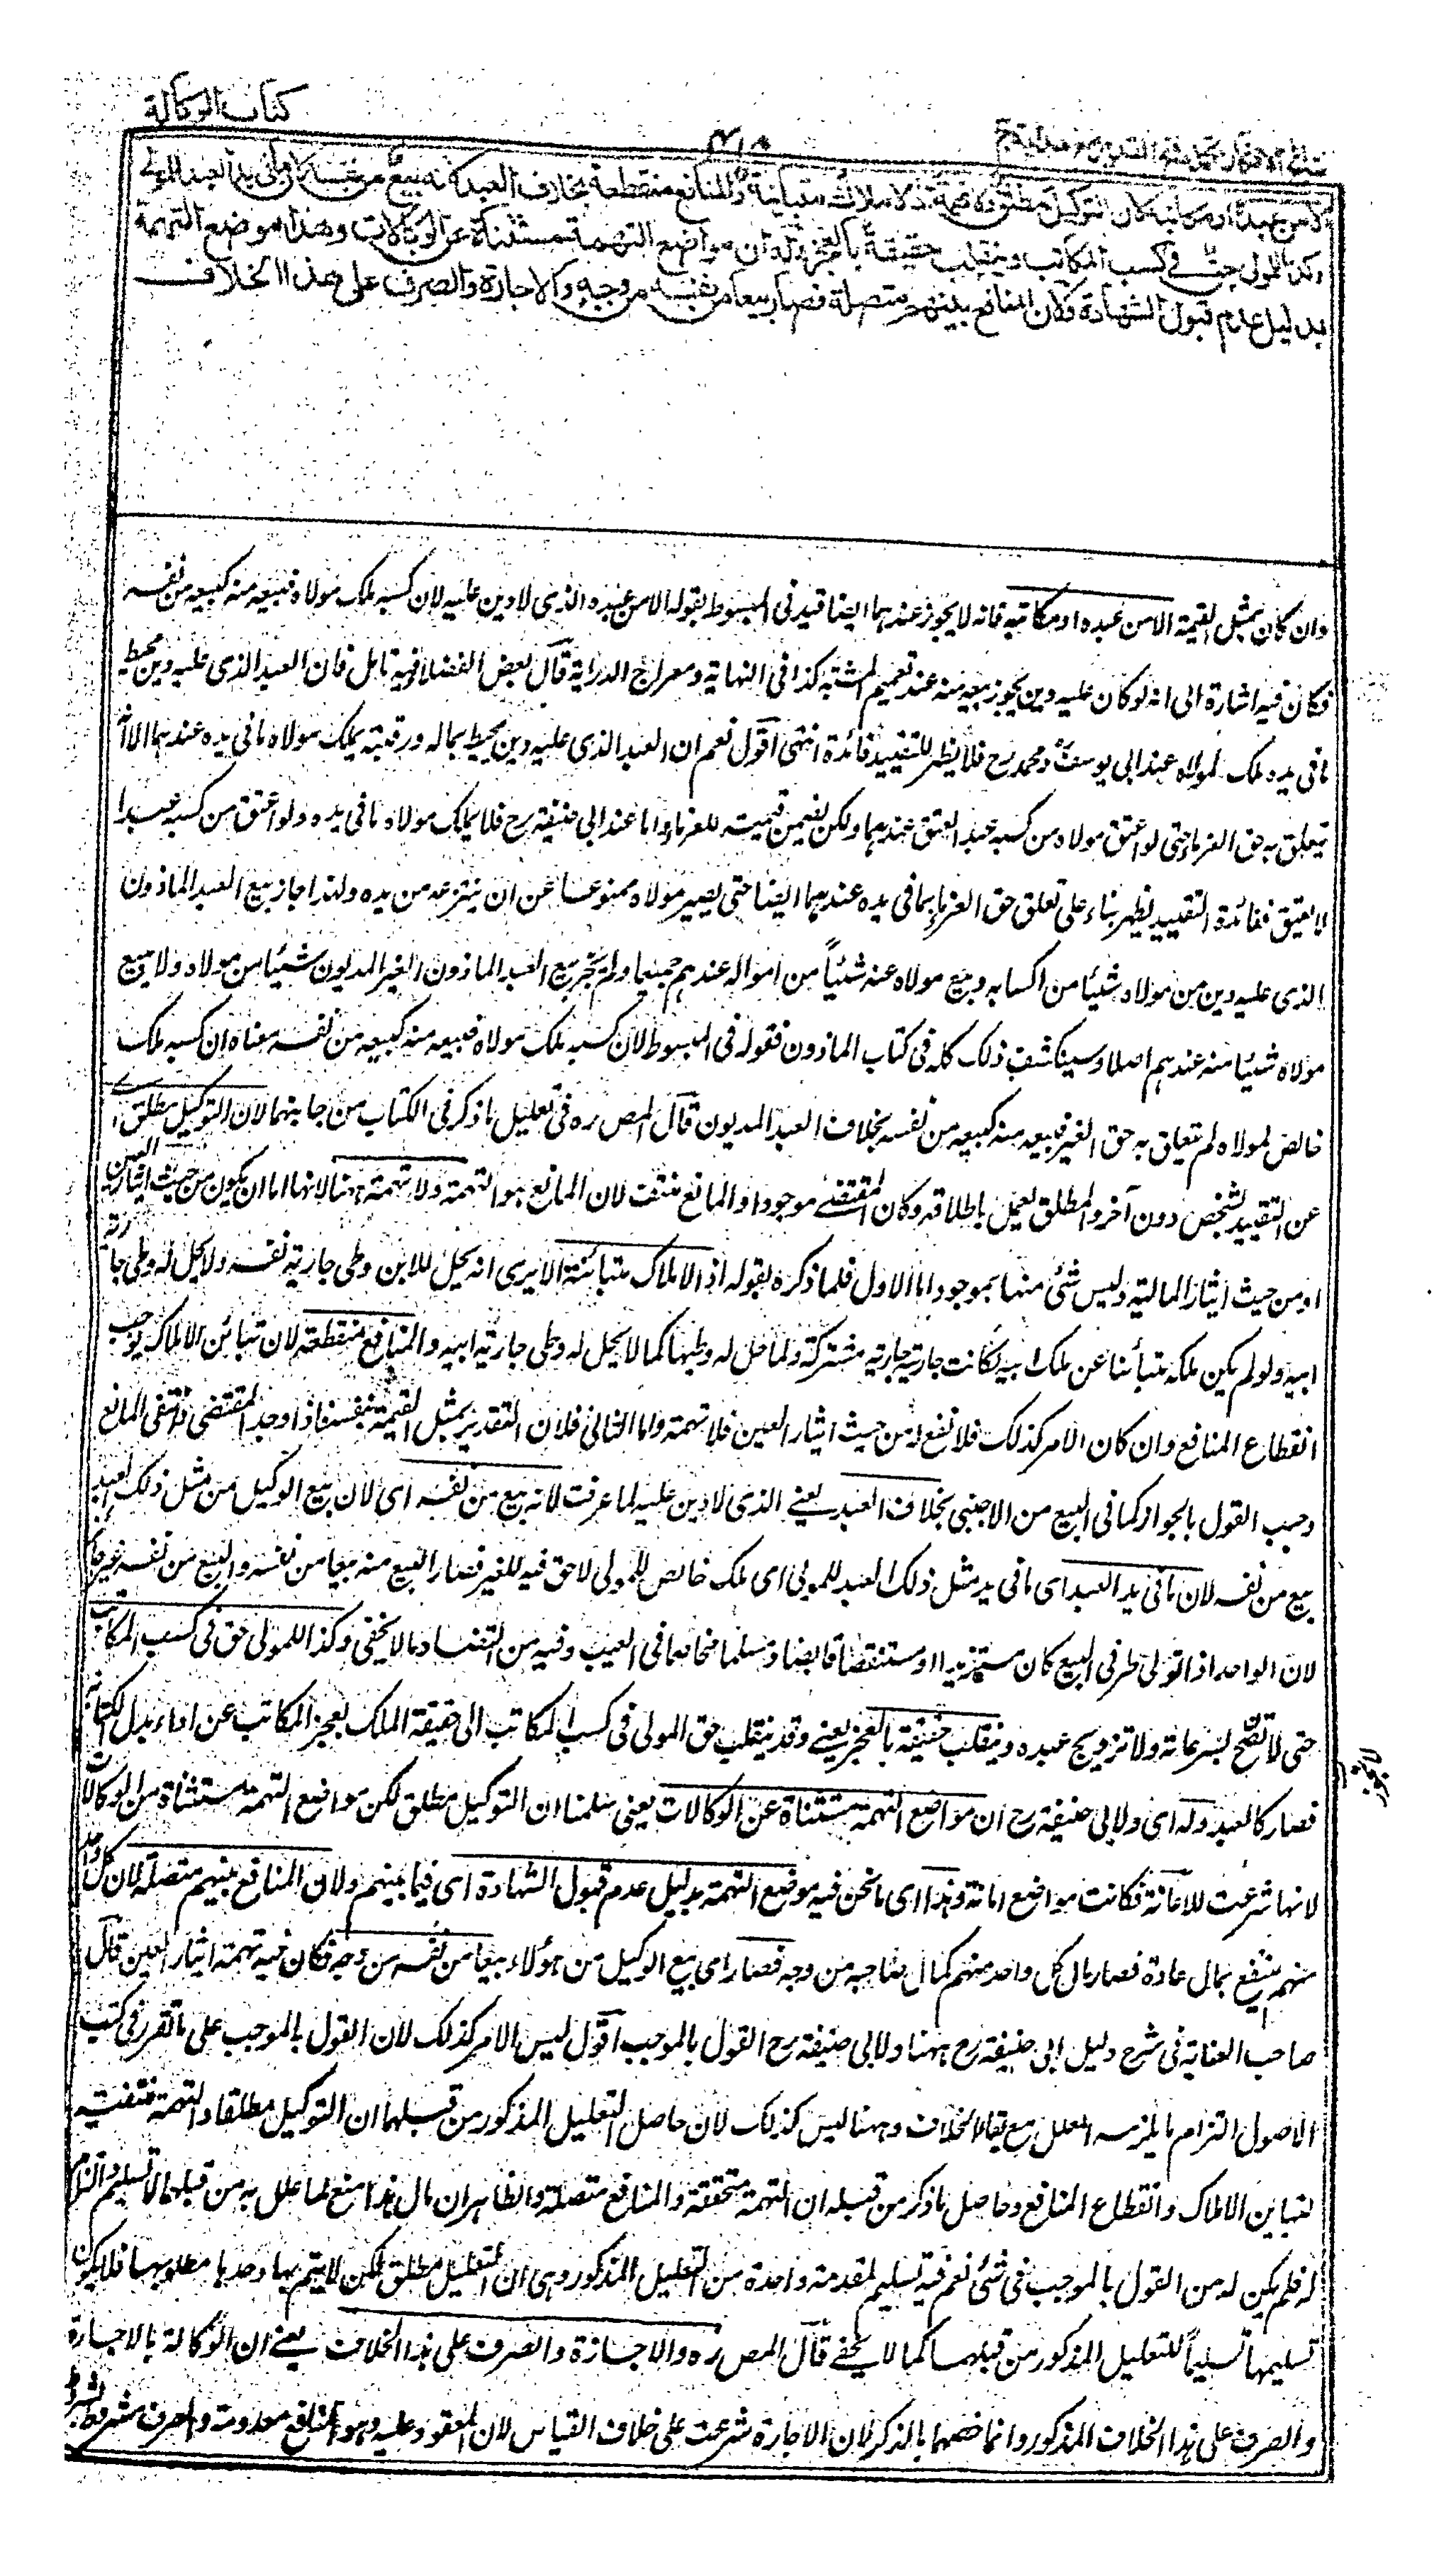 كتاب الوكالة
الا من عبده او مكاتبه لان التوكيل مطلق ولا تهمة اذ الاملاك متباينة والمنافع منقطعة بخلاف العبد لانه بيع من نفسه لان ما في يد العبد للمولى
وكذا للمولى حق في كسب المكاتب وينقلب حقيقة بالعجز وله ان مواضع التهمة مستثناة عن الوكالات وهذا موضع التهمة
بدليل عدم قبول الشهادة ولان المنافع بينهم متصلة فصار بيعا من نفسه من وجه والاجارة والصرف على هذا الخلاف
وان كان بمثل القيمة الا من عبده او مكاتبه فانه لا يجوز عندهما ايضا قيد فى المبسوط بقوله الا من عبده الذى لا دين عليه لان كسبه ملك مولاه فبيعه منه كبيعه من نفسه
فكان فيه اشارة الى انه لو كان عليه دين يجوز بيعه منه عند تعميم المشية كذا فى النهاية ومعراج الدراية قال بعض الفضلاء فيه تامل فان العبد الذى عليه دين محيط
ما فى يده ملك لمولاه عند ابى يوسف ومحمد رح فلا يظهر للتقييد فائدة انتهى اقول نعم ان العبد الذى عليه دين يحيط بماله ورقبته يملك مولاه ما فى يده عندهما الا انه
تيعلق به حق الغرماء حتى لو اعتق مولاه من كسبه عبدا لعتق عندهما ولكن يضمن قيمته للغرماء واما عند ابى حنيفة رح فلا يملك مولاه ما فى يده ولو اعتق من كسبه عبدا
لا يعتق ففائدة التقييد يظهر بناء على تعلق حق الغرماء بما فى يده عندهما ايضا حتى يصير مولاه ممنوعا عن ان ينتزعه من يده ولهذا جاز بيع العبد الماذون
الذى عليه دين من مولاه شيئا من اكسابه وبيع مولاه عنه شيئاً من امواله عندهم جميعا ولم يجز بيع العبد الماذون الغير المديون شيئا من مولاه ولا بيع
مولاه شيئا منه عندهم اصلا وسينكشف ذلك كله فى كتاب الماذون فقوله فى المبسوط لان كسبه ملك مولاه فبيعه منه كبيعه من نفسه معناه ان كسبه ملك
خالص لمولاه لم يتعلق به حق الغير فبيعه منه كبيعه من نفسه بخلاف العبد المديون قال المص ره فى تعليل ما ذكر فى الكتاب من جانبهما لان التوكيل مطلق اى
عن التقييد بشخص دون آخر والمطلق يعمل باطلاقه وكان المقتضے موجودا والمانع منتف لان المانع هو التهمة ولا تهمة ههنا لانها اما ان يكون من حيث ايثار العين
او من حيث ايثار المالية وليس شئ منها بموجود اما الاول فلما ذكره بقوله اذ الاملاك متبائنة الا يرى انه يحل للابن وطى جارية نفسه ولا يحل له وطى جارية
ابيه ولو لم يكن ملكه متبأئنا عن ملك ابيه لكانت جاريته جارية مشتركة ولما حل له وطيها كما لا يحل له وطى جارية ابيه والمنافع منقطعة لان تبائن الاملاك يوجب
انقطاع المنافع وان كان الامر كذلك فلا نفع له من حيث ايثار العين فلا تهمة واما الثانى فلان التقدير بمثل القيمة ينفيه فاذا وجد المقتضى وانتفى المانع
وجب القول بالجواز كما فى البيع من الاجنبى بخلاف العبد يعنے الذى لا دين عليه لما عرفت لانه بيع من نفسه اى لان بيع الوكيل من مثل ذلك العبد
بيع من نفسه لان ما فى يد العبد اى ما فى يد مثل ذلك العبد للمولى اى ملك خالص للمولى لا حق فيه للغير فصار البيع منه بيعا من نفسه والبيع من نفسه غير جائز
لان الواحد اذا تولى طرفى البيع كان مستزيدا ومستنقصا قابضا ومسلما مخاصما فى العيب وفيه من التضاد ما لا يخفى وكذا للمولى حق فى كسب المكاتب
حتى لا تصح تبرعاته ولا تزويج عبده وينقلب حقيقة بالعجز يعنے وقد ينقلب حق المولى فى كسب المكاتب الى حقيقة الملك بعجز المكاتب عن اداء بدل الكتابة
لا يجوز
فصار كالعبد وله اى ولابى حنيفة رح ان مواضع التهمة مستثناة عن الوكالات يعنى سلمنا ان التوكيل مطلق لكن مواضع التهمة مستثناة من الوكالات
لانها شرعت للاعانة فكانت مواضع امانة وهذا اى ما نحن فيه موضع التهمة بدليل عدم قبول الشهادة اى فيما بينهم ولان المنافع بينهم متصلة لان كل واحد
منهم ينتفع بمال عادة فصار مال كل واحد منهم كمال صاحبه من وجه فصار اى بيع الوكيل من هؤلاء بيعا من نفسه من وجه فكان فيه تهمة ايثار العين قال
صاحب العناية فى شرح دليل ابى حنيفة رح ههنا ولابى حنيفة رح القول بالموجب اقول ليس الامر كذلك لان القول بالموجب على ما تقرر فى كتب
الاصول التزام ما يلزمه المعلل مع بقاء الخلاف وههنا ليس كذلك لان حاصل التعليل المذكور من قبلهما ان التوكيل مطلقا والتهمة منتفية
لتباين الاملاك وانقطاع المنافع وحاصل ما ذكر من قبله ان التهمة متحققة والمنافع متصلة والظاهر ان مآل هذا منع لما علل به من قبلهما لا تسليم والتزام
له فلم يكن له من القول بالموجب فى شئ نعم فيه تسليم لمقدمة واحدة من التعليل المذكور وهى ان التعليل مطلق لكن لا يتم بها وحدها مطلوبهما فلا يكون
تسليمها تسليماً للتعليل المذكور من قبلهما كما لا يخفے قال المص ره والاجازة والصرف على هذا الخلاف يعنے ان الوكالة بالاجارة
والصرف على هذا الخلاف المذكور وانما خصهما بالذكر لان الاجارة شرعت على خلاف القياس لان المعقود عليه وهو المنافع معدومة والصرف مشروط بشروط